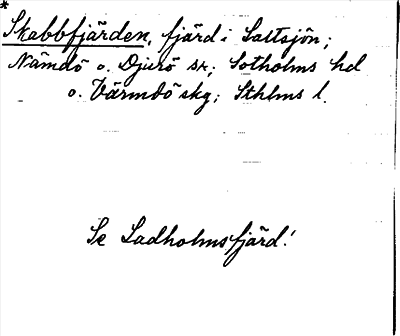 * Skabbfjärden, fjärd i Saltsjön;
Nämdö o. Djurö sn; Sotholms hd
o. Värmdö skg; Sthlms l.
Se Ladholmsfjärd!